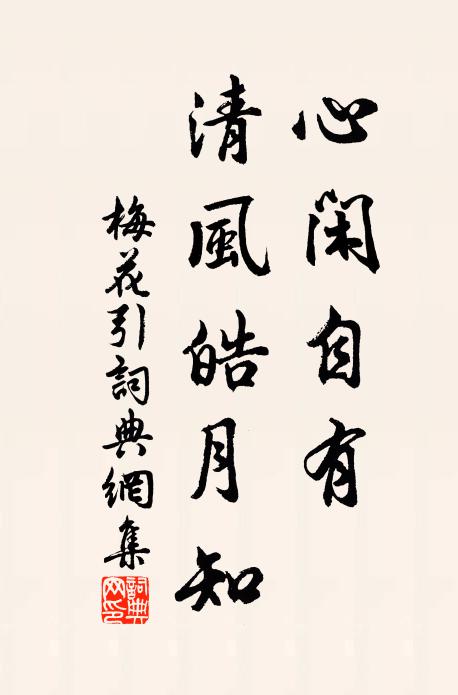 心闲自有
清風皓月知
梅花引詞典網集
詞典网印